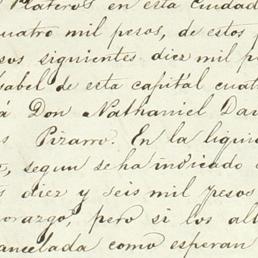 Plateros en esta ciudad
cuatro mil pesos, de estos
sos siguientes diez mil p
sabel de esta capital cuat
á Don Nathaniel Dav
s Pizarro. En la liqui
o, segun se ha indicado
s diez y seis mil pesos
orazgo, pero si los al
ancelada como esperan